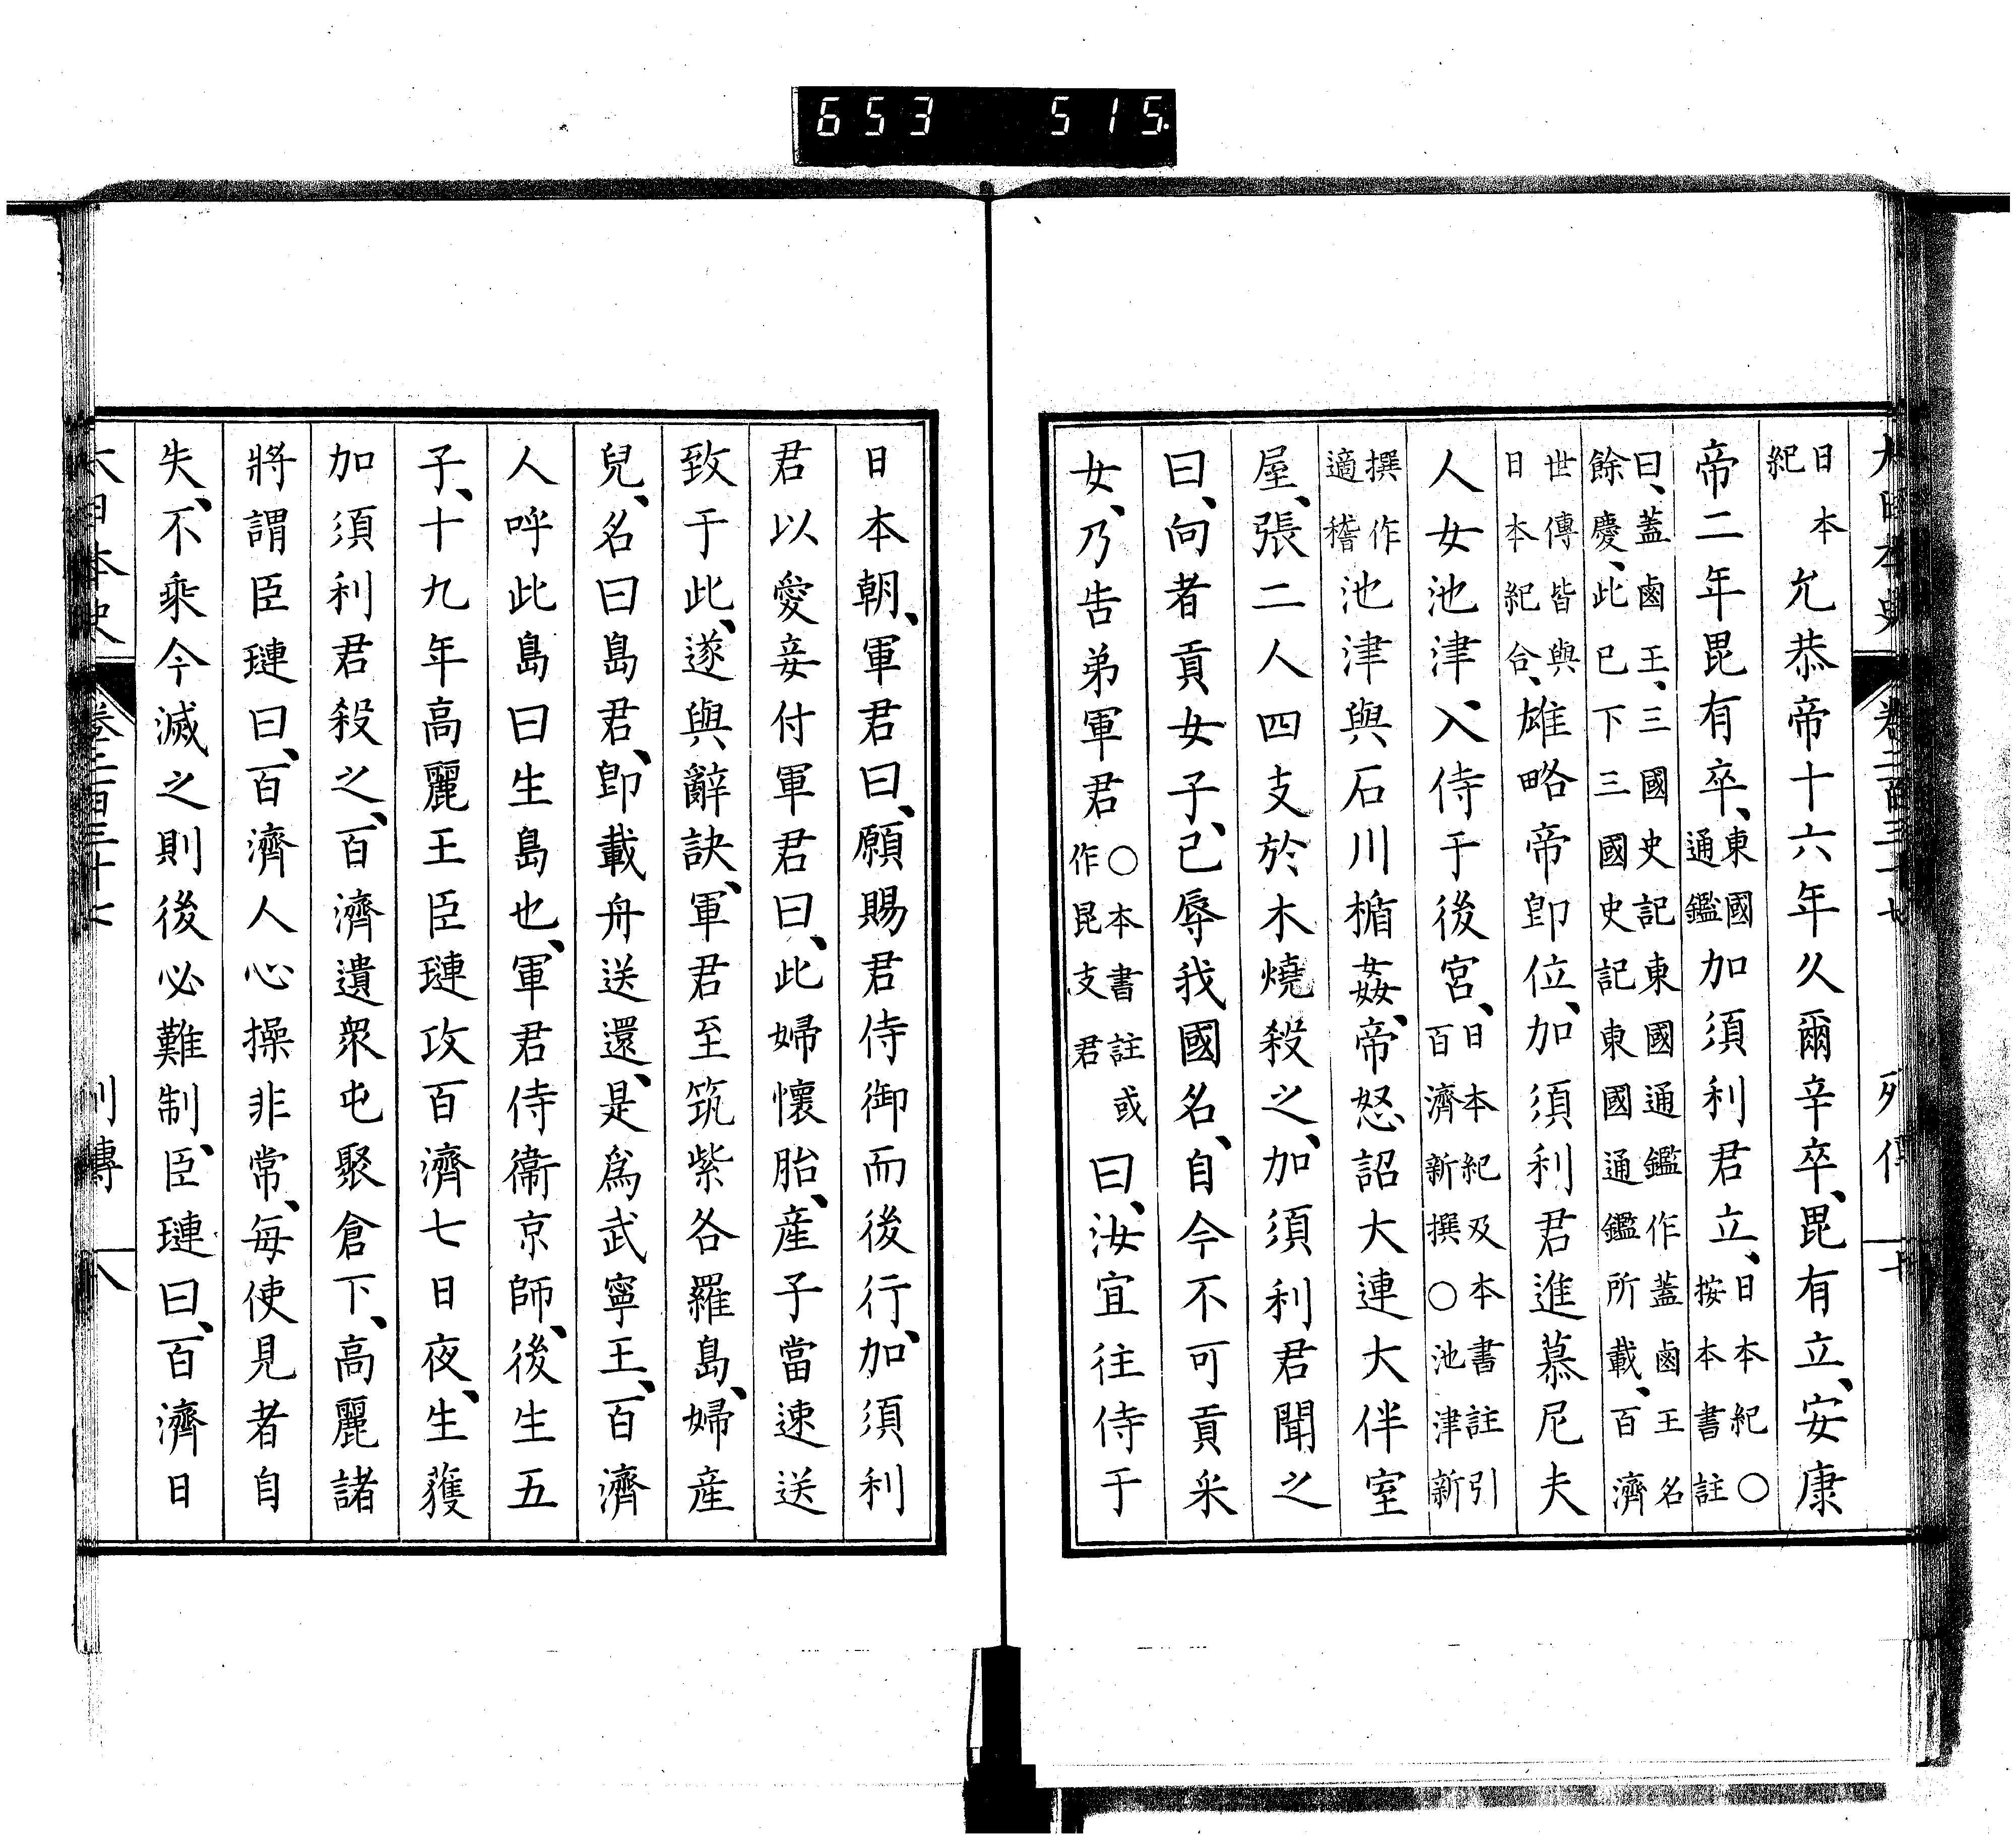 653 515.
大日本史 卷二百三十七 列傳
日本
紀
允恭帝十六年久爾辛卒、毘有立、安康
帝二年毘有卒、
東國
通鑑
加須利君立、
日本紀○
按本書註
曰、蓋鹵王、三國史記東國通鑑作蓋鹵王名
餘慶、此已下三國史記東國通鑑所載、百濟
世傳皆與
日本紀合、
雄略帝卽位、加須利君進慕尼夫
人女池津、入侍于後宮、
日本紀及本書註引
百濟新撰○池津新
撰作
適稽
池津與石川楯姦、帝怒、詔大連大伴室
屋、張二人四支於木燒殺之、加須利君聞之
曰、向者貢女子、已辱我國名、自今不可貢釆
女、乃告弟軍君
○本書註或
作昆支君
曰、汝宜往侍于
日本朝、軍君曰、願賜君侍御而後行、加須利
君以愛妾付軍君曰、此婦懷胎、產子當速送
致于此、遂與辭訣、軍君至筑紫各羅島、婦產
兒、名曰島君、卽載舟送還、是爲武寧王、百濟
人呼此島曰生島也、軍君侍衞京師、後生五
子、十九年高麗王臣璉攻百濟七日夜、生獲
加須利君殺之、百濟遺衆屯聚倉下、高麗諸
將謂臣璉曰、百濟人心操非常、每使見者自
失、不乘今滅之則後必難制、臣璉曰、百濟日
大日本史 卷二百三十七 列傳 八